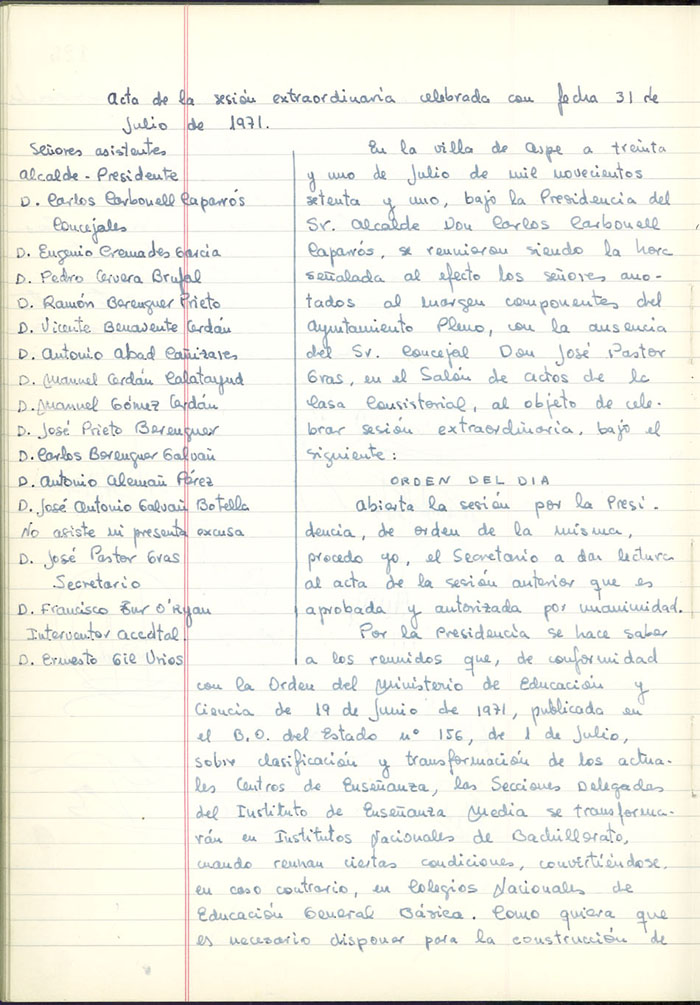 Acta de la sesión extraordinaria celebrada con fecha 31 de
Julio de 1971.
Señores asistentes
Alcalde - Presidente
D. Carlos Carbonell Caparrós
Concejales
D. Eugenio Cremades García
D. Pedro Cervera Brufal
D. Ramón Berenguer Prieto
D. Vicente Benavente Cerdán
D. Antonio Abad Cañizares
D. Manuel Cerdán Calatayud
D. Manuel Gómez Cerdán
D. José Prieto Berenguer
D. Carlos Berenguer Galvañ
D. Antonio Alemañ Pérez
D. José Antonio Galvañ Botella
No asiste ni presenta excusa
D. José Pastor Gras
Secretario
D. Francisco Zur O'Ryan
Interventor accdtal.
D. Ernesto Gil Urios
En la villa de Aspe a treinta
y uno de Julio de mil novecientos
setenta y uno, bajo la Presidencia del
Sr. Alcalde Don Carlos Carbonell
Caparrós, se reunieron siendo la hora
señalada al efecto los señores ano-
tados al margen componentes del
Ayuntamiento Pleno, con la ausencia
del Sr. Concejal Don José Pastor
Gras, en el Salón de actos de la
Casa Consistorial, al objeto de cele-
brar sesión extraordinaria, bajo el
siguiente:
ORDEN DEL DIA
Abierta la sesión por la Presi-
dencia, de orden de la misma,
procedo yo, el Secretario a dar lectura
al acta de la sesión anterior que es
aprobada y autorizada por unanimidad.
Por la Presidencia se hace saber
a los reunidos que, de conformidad
con la Orden del Ministerio de Educación y
Ciencia de 19 de Junio de 1971, publicado en
el B.O. del Estado nº 156, de 1 de Julio,
sobre clasificación y transformación de los actua-
les Centros de Enseñanza, las Secciones Delegadas
del Instituto de Enseñanza Media se transforma-
rán en Institutos Nacionales de Bachillerato,
cuando reunan ciertas condiciones, convirtiéndose,
en caso contrario, en Colegios Nacionales de
Educación General Básica. Como quiera que
es necesario disponer para la construcción de